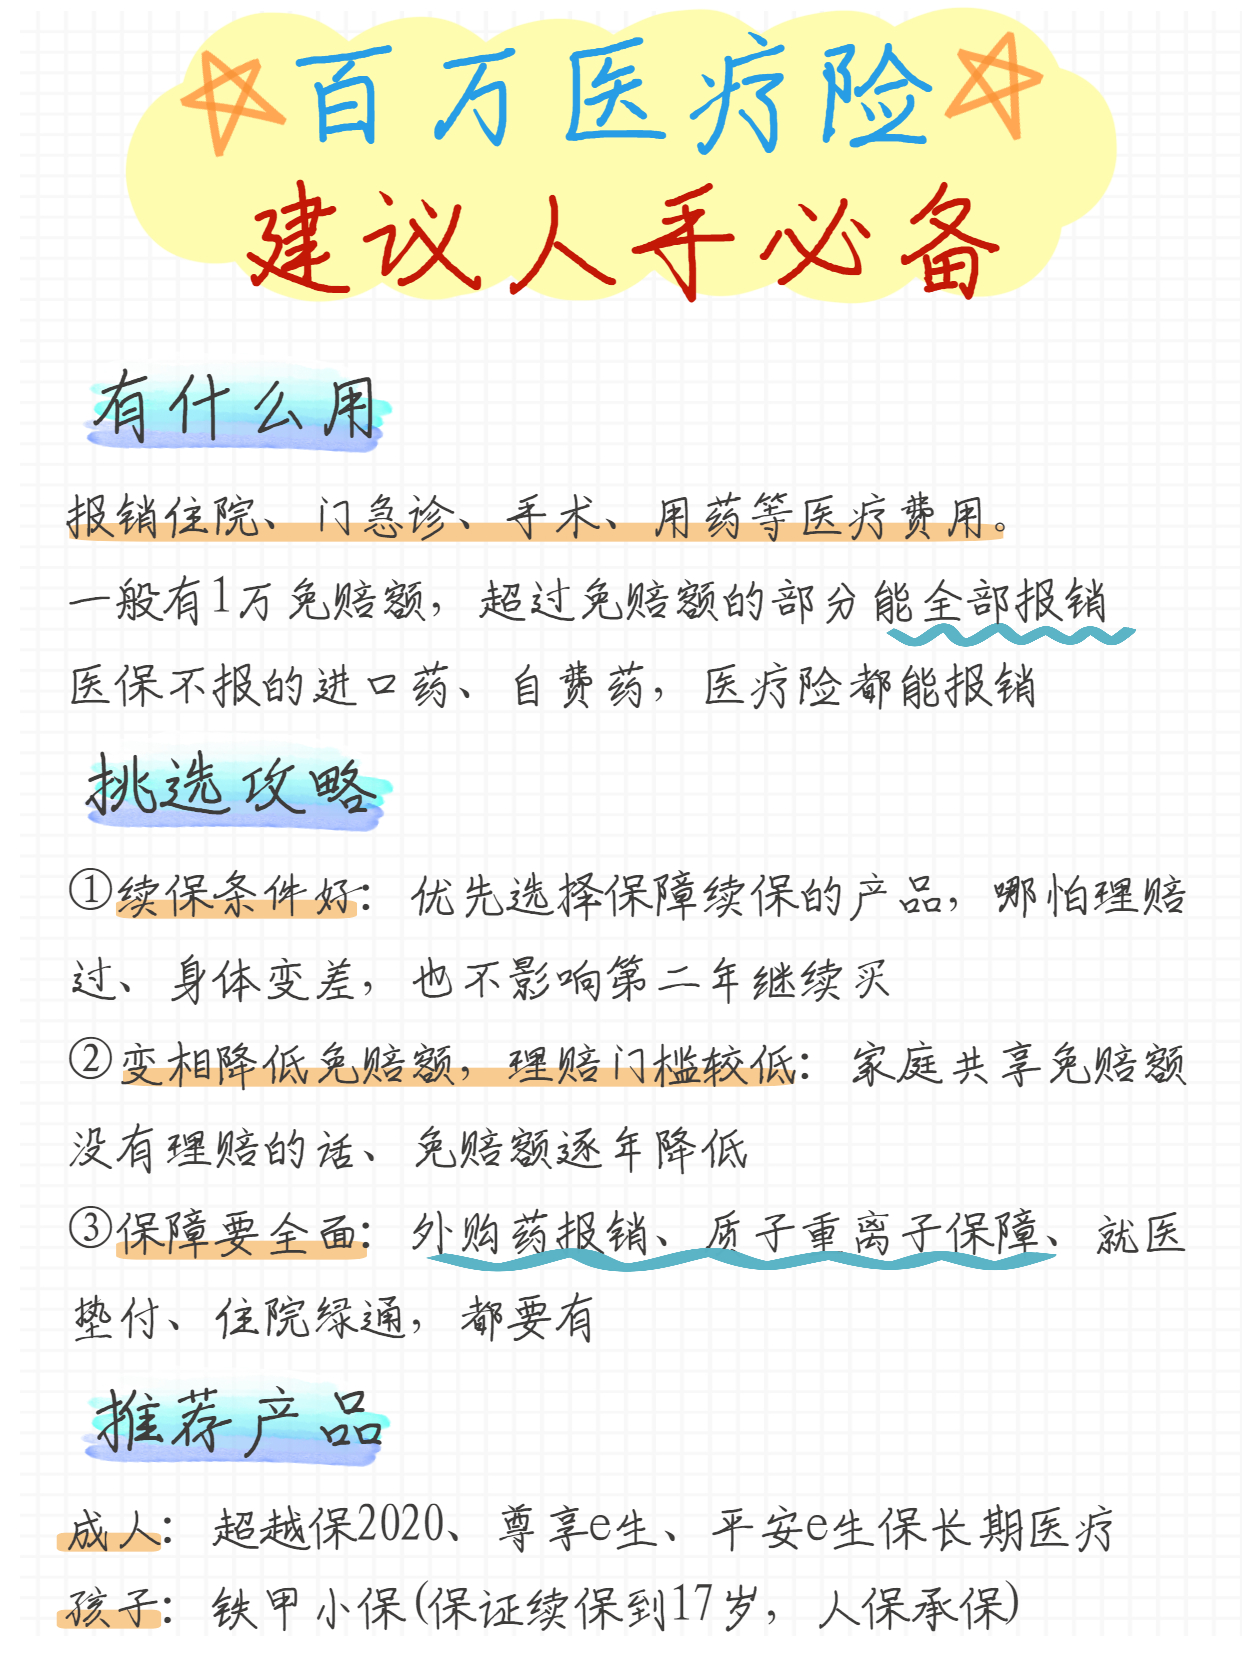 百万医疗险
建议人手必备
有什么用
报销住院、门急诊、手术、用药等医疗费用。
一般有1万免赔额，超过免赔额的部分能全部报销
医保不报的进口药、自费药，医疗险都能报销
挑选攻略
①续保条件好：优先选择保障续保的产品，哪怕理赔
过、身体变差，也不影响第二年继续买
②变相降低免赔额，理赔门槛较低：家庭共享免赔额
没有理赔的话、免赔额逐年降低
③保障要全面：外购药报销、质子重离子保障、就医
垫付、住院绿通，都要有
推荐产品
成人：超越保2020、尊享e生、平安e生保长期医疗
孩子：铁甲小保(保证续保到17岁，人保承保)